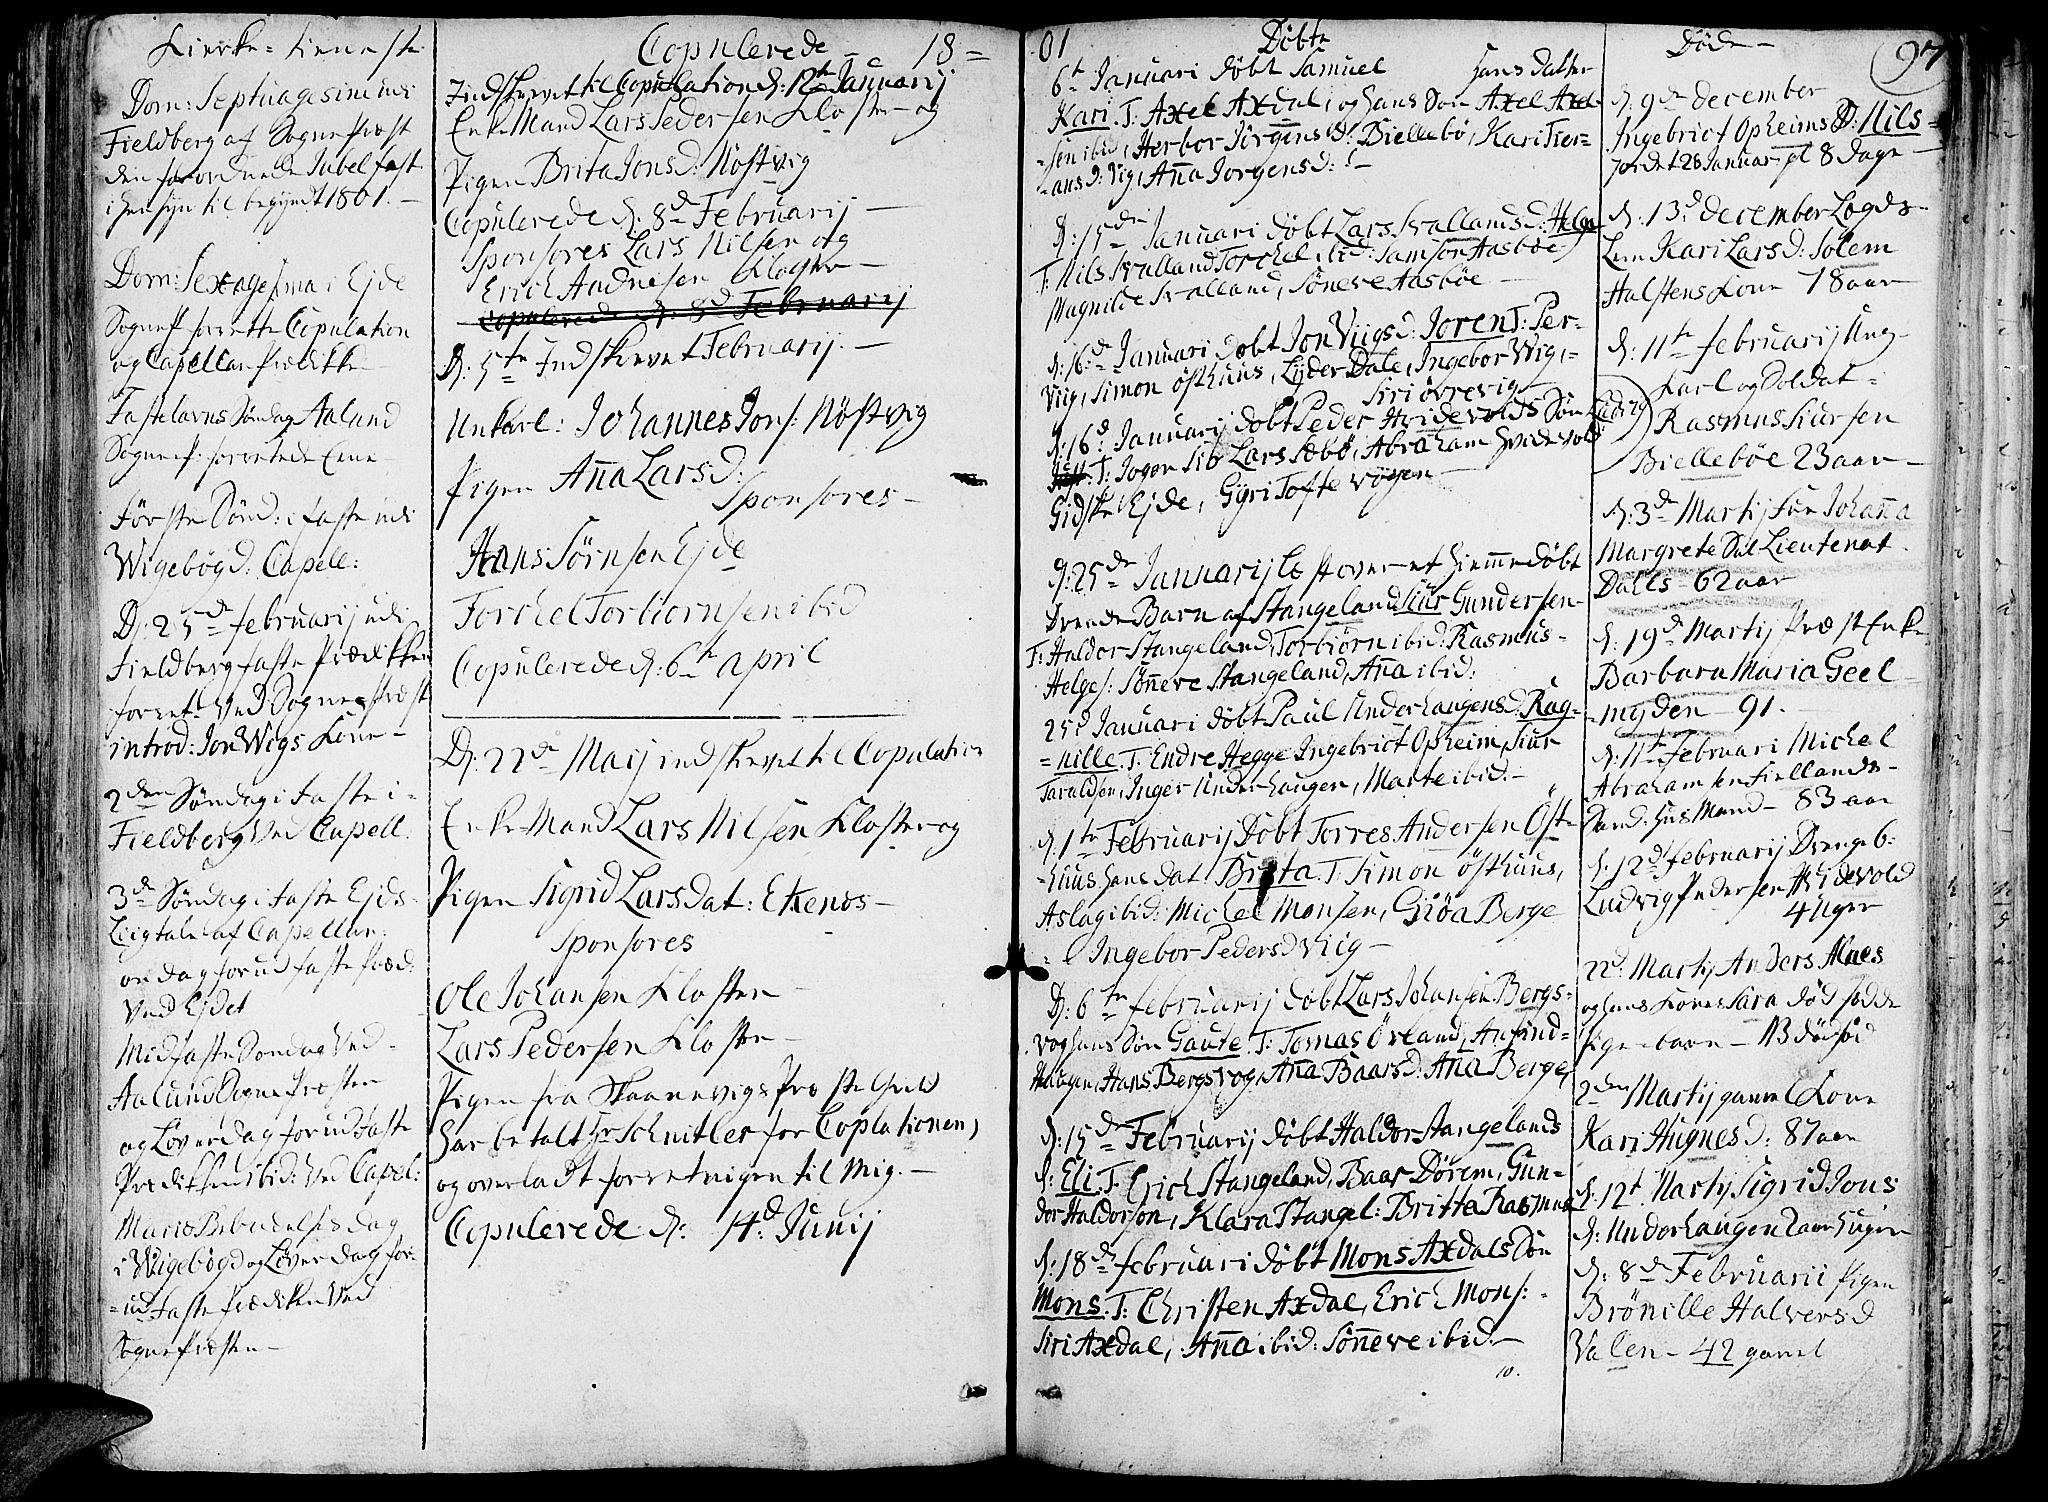 Kierke-tieneste
Dom: Septuagesim: udi
Fieldberg af Sognepræst
den forordnede Jubelfæst
i hensyn til begyndt 1801. —
Dom: Sexagesima i Ejde
Sognep: forrette Copulation
og Capellan Prædikke —
Fastelavns Søndag Aalund
Sognep: forrettede Eene —
Första Sönd: i faste udi
Wigebögd: Capell:
D: 25de februarij udi
Fieldberg faste Prædikken
forret: ved Sognepræst
introd: Jon Wigs Kone —
2den Söndag i faste i
Fieldberg ved Capell.
3de Söndag i faste Ejds-
af Capellan:
ondag forud faste Præd:
ved Ejdet
Midfaste Sondag ved
Aalund Sognepræsten
og Löverdag forud faste
Prædikken ibid: ved Capel:
Mariæ Bebudelses dag
i Wigebögd og Löverdag for-
=ud faste Prædiken ved
Sognepræsten —
Copulerede — 18 =
Indskrevet til Copulation d: 12te Januarij
Enke Mand Lars Pedersen Kloster og
Pigen Brita Jonsd: Nöstvig
Copulerede d: 8de Februarij —
Sponsores Lars Nilsen og
Erich Andnesen Kloster —
Copulerede d: 8d Februarij
D: 5te Indskrevet Februarij. —
Unkarl: Johannes Jons: Nöstvig
Pigen Anna Larsd:
Sponsores —
Hans Sörnsen Ejde
Torchel Torbiornsen ibid
Copulerede d: 6te april
D: 22de Maij indskrevet til Copulation
Enke Mand Lars Nilsen Kloster og
Pigen Sigrid Larsdat: Etenos —
Sponsores
Ole Johansen Kloster —
Lars Pedersen Kloster —
Pigen fra Skaanevigs Præstegield
har betalt hr Schnitler for Coplationen,
og overladt forretnigen til Mig. —
Copulerede d: 14d Junij
01 Döbte
6te Januari döbt Samuel hans datter
Kari. T: Axel Axdal, og hans Son Axel Axel-
=sen ibid, Herbor Jörgens D: Biellebö, Kari Tier-
=ans d: Vig, Anna Jorgens d: —
D: 15de Januari döbt Lars Svallands d: Helge
T: Nils Svalland Torchel ibid: Samson Aasböe
Magnilde Svalland, Söneve Aasböe —
d: 16de Januari döbt Jon Viigs d: Joren T: Per-
Viig, Simon östhuus, Lyder Dale, Ingebor Wig,=
Siri övrevig —
d: 16d: Januarij döbt Peder Hvidevolds Sön Ludvig
T: Joger Lars Sæbö, Abraham Hvidevold
Gidske Ejde, Gyri Toftevögen —
d: 25de Januarij læst over et hiemmedöbt
Drenge Barn af Stangeland Siur Gundersen
F: Haldor Stangeland, Torbiörn ibid: Rasmus-
Helges: Sönneve Stangeland, Anna ibid.
25d Januari döbt Paul Underhaugens d: Rag-
=nille. T: Endre Hegge Ingebrict Opheim, Siur
Taraldsen, Inger Underhaugen, Marte ibid. —
d: 1te Februarij Döbt Torres Andersen Öst-
=huus hans dat Brita. T: Simon östhuus,
Aslag ibid: Michel Monsen, Giöa Berge
Ingebor Pedersd Viig —
D: 6te februarij döbt Lars Johansen Bergs-
vog hans Sön Gaute. T: Tomas Örland, Anfind-
Haugen, Hans Bergsvog, Anna Baars D: Anna Berge,
d: 15de Februarij döbt Haldor Stangelands
d: Eli. T: Erich Stangeland, Baar Dörem, Gun-
dor Haldorson, Klara Stangel: Britta Rasmus
d: 18de februari döbt Mons Axdals Sön
Mons. T: Christen Axdal, Erich Mons:
Siri Axdal, Anna ibid: Sönneve ibid. —
10.
Döde — 97
d: 9de december
Ingebrict Opheims D: Nils-
jordet 28 Januar gl 8 dage —
d: 13d december Logds-
Lem Kari Lars d: Solem
Halstens Kone 78 aar
d: 11te februarij Ung-
karl og Soldat =
Rasmus Siursen
Biellebøe 23 aar —
d: 3de Martij Frue Johanna
Margrete Sal Lieutenat
Dalls — 62 aar
d: 19d Martij Præst Enke
Barbara Maria Geel-
=myden — 91. —
d: 11te Februari Michel
Abrahamsen Fiellands-
Sand: Husmand — 83 aar
d: 12d februarij Drenge b:
Ludvig Pedersen Hvidevold
4 Uger
22d Martij Anders Alnes
og hans Kones Sara död fødde
Pigebarn — NB dödföd
2den Martij gamel Kone
Kari Hugnes d: 87 aar
d: 12t Martij Sigrid Jons
d: Underhaugen 2 aar
d: 8d Februarii Pigen
Brönille Halversd
Valen — 42 gamel